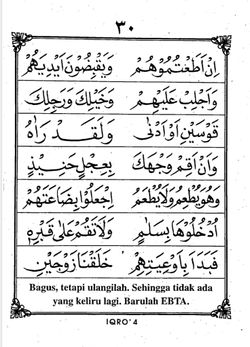 ٣٠
اِنْ اَطَعْتُمُوْهُمْ وَيَقْبِضُوْنَ اَيْدِيَهُمْ
وَاَجْلِبْ عَلَيْهِمْ وَخَيْلِكَ وَرَجِلِكَ
قَوْسَيْنِ اَوْ اَدْنٰى وَلَقَدْ رَاٰهُ
وَاَنْ اَقِمْ وَجْهَكَ بِعِجْلٍ حَنِيْذٍ
وَهُوَ يُطْعِمُ وَلَا يُطْعَمُ اِجْعَلُوْا بِضَاعَتَهُمْ
اُدْخُلُوْهَا بِسَلٰمٍ وَلَا تَقُمْ عَلٰى قَبْرِهٖ
فَبَدَاَ بِاَوْعِيَتِهِمْ خَلَقْنَا زَوْجَيْنِ
Bagus, tetapi ulangilah. Sehingga tidak ada
yang keliru lagi. Barulah EBTA.
IQRO' 4